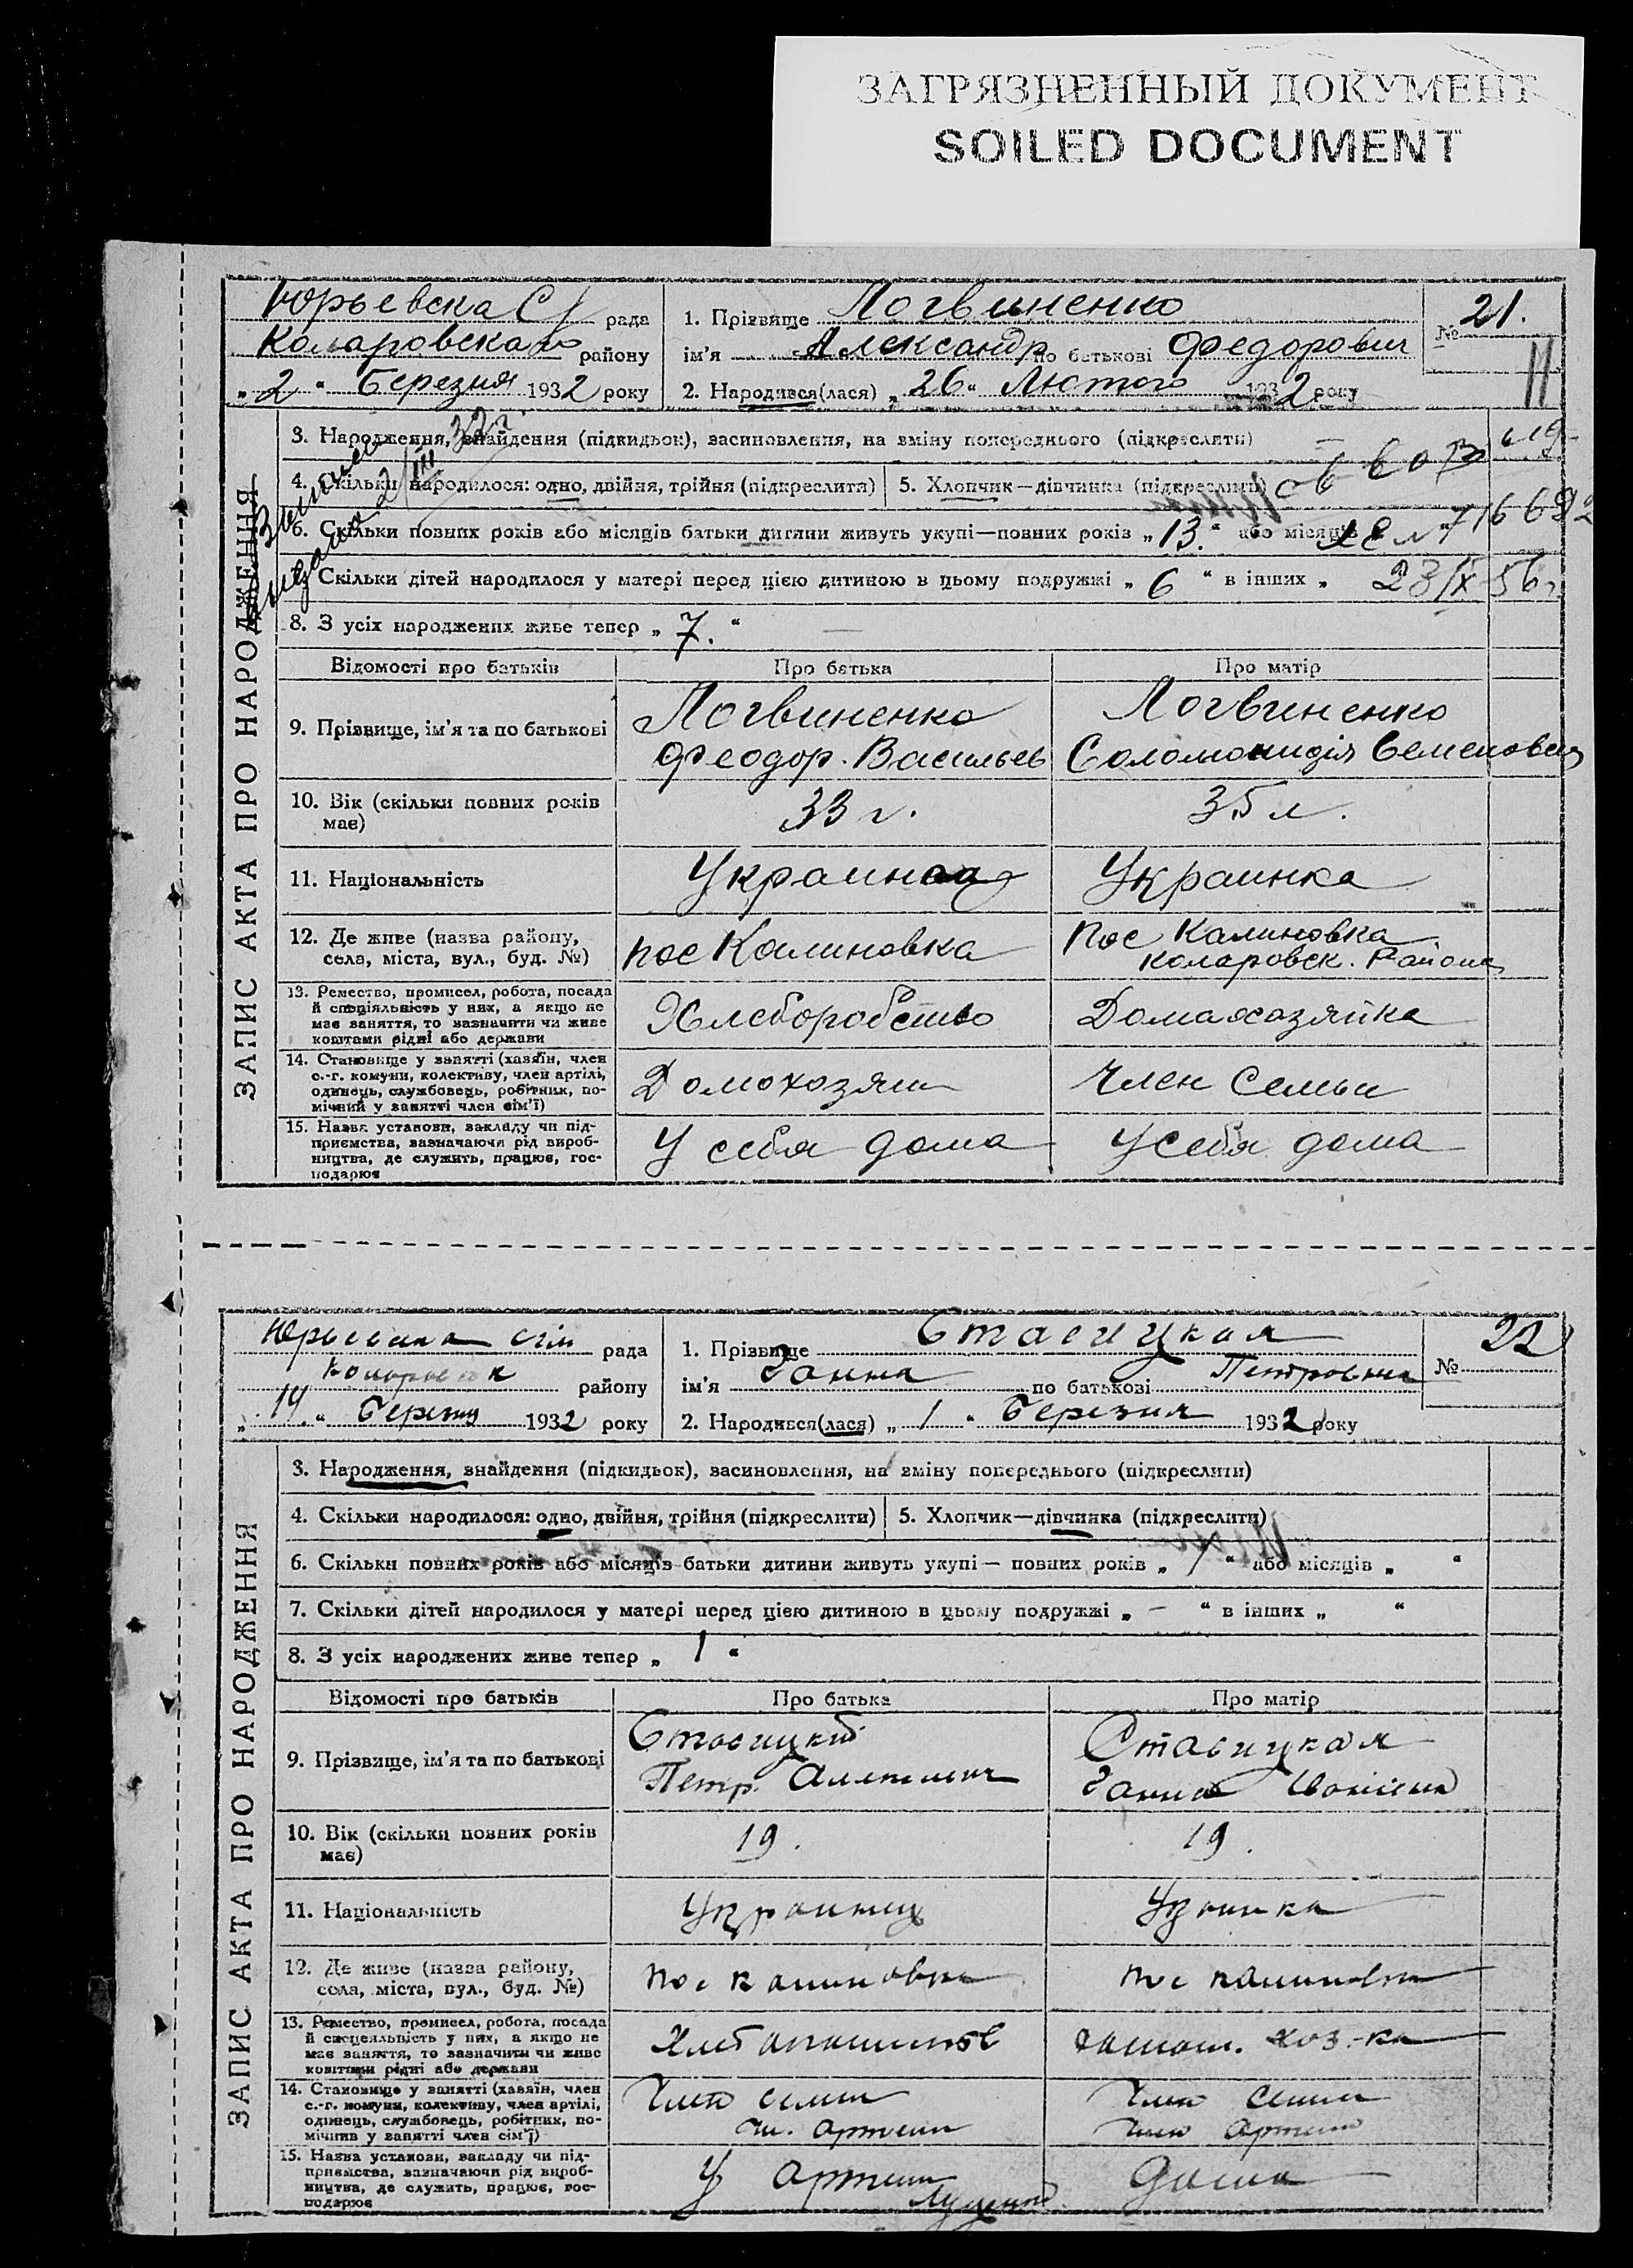 ЗАГРЯЗНЕННЫЙ ДОКУМЕНТ
SOILED DOCUMENT
Юрьевска С/ рада
Коларовская району
„2“ Березня 1932 року
1. Прізвище Логвиненко
ім'я Александр по батькові Федорович
2. Народився(лася) „26“ Лютого 1932 року
№ 21.
11
ЗАПИС АКТА ПРО НАРОДЖЕННЯ
3. Народження, знайдення (підкидьок), засиновлення, на зміну попереднього (підкреслити)
4. Скільки народилося: одно, двійня, трійня (підкреслити)
5. Хлопчик—дівчинка (підкреслити)
6. Скільки повних років або місяців батьки дитини живуть укупі—повних років „13.“ або місяців
716692
Скільки дітей народилося у матері перед цією дитиною в цьому подружжі „6“ в інших „
23/IX-56г.
8. З усіх народжених живе тепер „7.“
Відомості про батьків Про батька Про матір
9. Прізвище, ім'я та по батькові
Логвиненко
Феодор. Васильев
Логвиненко
Соломонидія Семеновна
10. Вік (скільки повних років
має)
33 г.
35 л.
11. Національність
Украинка
12. Де живе (назва району,
села, міста, вул., буд. №)
пос Калиновка
Пос Калиновка
Коларовск. Района
13. Ремество, промисел, робота, посада
й спеціяльність у них, а якщо не
має заняття, то зазначити чи живе
коштами рідні або держави
Хлеборобство
Домахозяйка
14. Становище у занятті (хазяїн, член
с.-г. комуни, колективу, член артілі,
одинець, службовець, робітник, по-
мічний у занятті член сім'ї)
Домохозяин
Член Семьи
15. Назва установи, закладу чи під-
приємства, зазначаючи рід вироб-
ництва, де служить, працює, гос-
подарює
У себя дома
У себя дома
рада
району
„14“ Березня 1932 року
1. Прізвище Стасицкая
ім'я Ганна по батькові Петровна
2. Народився(лася) „1“ Березня 1932 року
№ 22
ЗАПИС АКТА ПРО НАРОДЖЕННЯ
3. Народження, знайдення (підкидьок), засиновлення, на зміну попереднього (підкреслити)
4. Скільки народилося: одно, двійня, трійня (підкреслити)
5. Хлопчик—дівчинка (підкреслити)
6. Скільки повних років або місяців батьки дитини живуть укупі — повних років „1“ або місяців „ “
7. Скільки дітей народилося у матері перед цією дитиною в цьому подружжі „ – “ в інших „ “
8. З усіх народжених живе тепер „1“
Відомості про батьків Про батька Про матір
9. Прізвище, ім'я та по батькові
Стасицкий
Петр.
Стасицкая
Ганна
10. Вік (скільки повних років
має)
19.
19.
11. Національність
Украинец
12. Де живе (назва району,
села, міста, вул., буд. №)
пос Калиновка
пос Калиновка
13. Ремество, промисел, робота, посада
й спеціяльність у них, а якщо не
має заняття, то зазначити чи живе
коштами рідні або держави
хоз-ка
14. Становище у занятті (хазяїн, член
с.-г. комуни, колективу, член артілі,
одинець, службовець, робітник, по-
мічний у занятті член сім'ї)
Член семьи
Чл. артели
Член Семьи
Член Артели
15. Назва установи, закладу чи під-
приємства, зазначаючи рід вироб-
ництва, де служить, працює, гос-
подарює
У артели
Дома